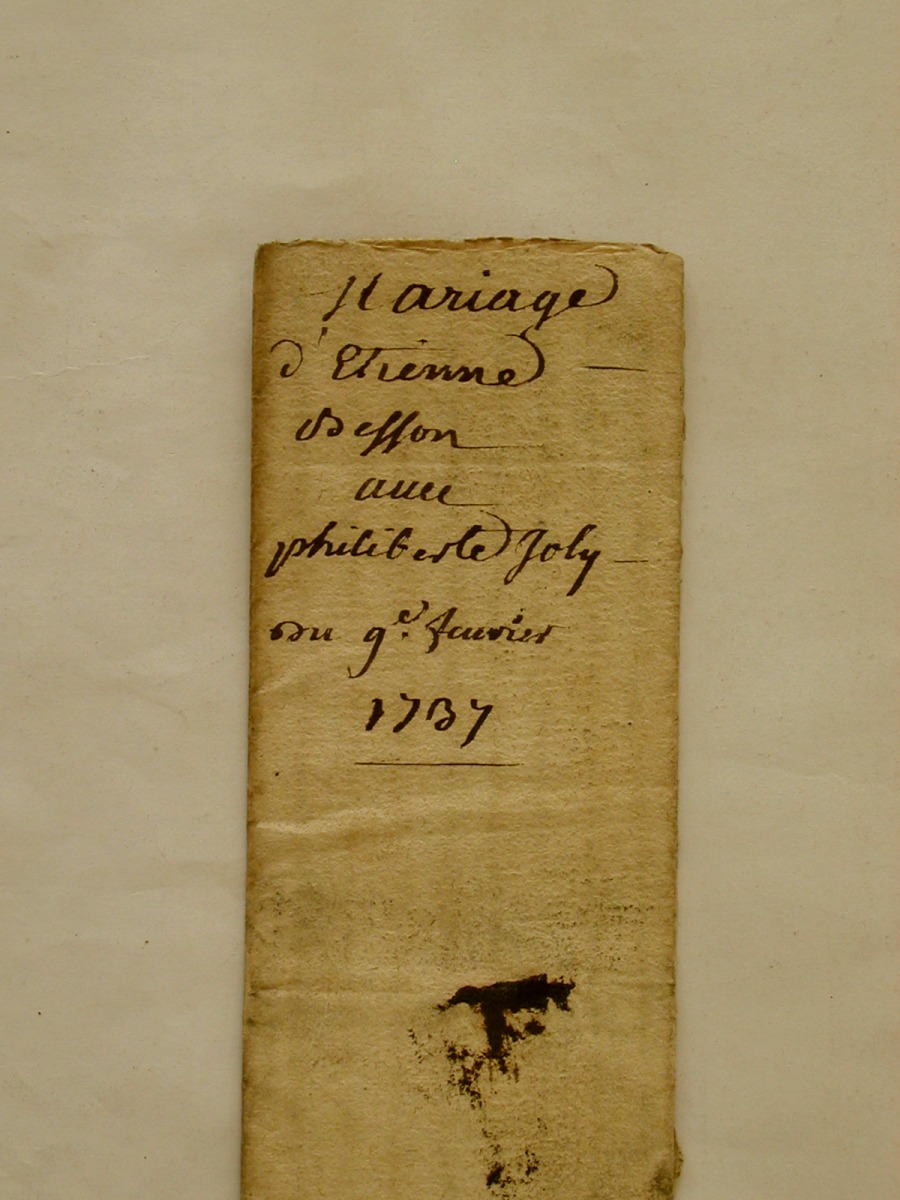 Mariage
d'Etienne
Besson
auec
philiberte Joly
Du 9e. feurier
1737